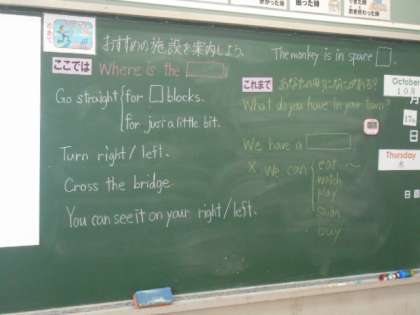 おすすめの施設を案内しよう。
The monkey is in space □.
ここでは
Where is the
これまで
あなたの町に何がある?
What do you have in your town?
Go straight for □ blocks.
for just a little bit.
We have a
× We can eat ~
watch
play
swim
buy
Turn right / left.
Cross the bridge
You can see it on your right / left.
October
10月
月
17
日
Thursday
木
日直